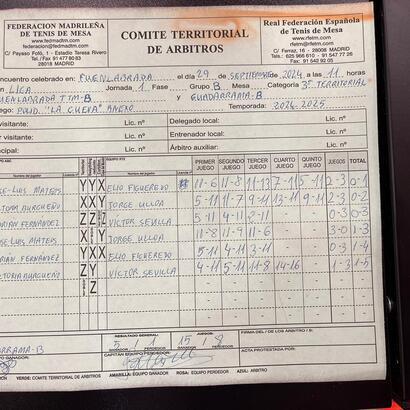 FEDERACION MADRILEÑA
DE TENIS DE MESA
www.fedmadtm.com
federacion@fedmadtm.com
C/ Payaso Fofó, 1 - Estadio Teresa Rivero
Tel./Fax 91 477 80 83
28018 MADRID
COMITE TERRITORIAL
DE ARBITROS
Real Federación Española
de Tenis de Mesa
http://www.rfetm.com
rfetm@rfetm.com
C/ Ferraz, 16 - 28008 MADRID
Tels.: 625 966 610 - 91 547 77 26
Fax: 91 542 92 05
ncuentro celebrado en FUENLABRADA el día 29 de SEPTIEMBRE de 2024 a las 11 horas
LIGA Jornada 1 Fase Grupo B Categoría 3ª TERRITORIAL
UENLABRADA TTM-B y GUADARRAMA-B
POLID. "LA CUEVA" ANEXO Temporada: 2024-2025
visitante: Lic. nº Delegado local: Lic. nº
visitante: Lic. nº Entrenador local: Lic. nº
incipal: Lic. nº Arbitro auxiliar: Lic. nº
PRIMER JUEGO SEGUNDO JUEGO TERCER JUEGO CUARTO JUEGO QUINTO JUEGO JUEGOS TOTAL
SE-LUIS MATEOS Y X ELIO FIGUEREDO 11-6 11-8 11-13 7-11 5-11 2-3 0-1
BURGUEÑO X Y JORGE ULLOA 5-11 11-7 9-11 13-11 9-11 2-3 0-2
FERNÁNDEZ Z Z VICTOR SEVILLA 5-11 4-11 2-11 0-3 0-3
SE-LUIS MATEOS X Y JORGE ULLOA 11-8 11-9 11-6 3-0 1-3
FERNÁNDEZ X ELIO FIGUEREDO 5-11 4-11 3-11 0-3 1-4
BURGUEÑO Y Z VICTOR SEVILLA 4-11 5-11 11-8 14-16 1-3 1-5
Z Y
RESULTADO GENERAL: JUEGOS: FIRMA DEL / DE LOS ARBITRO/S
ARRAMA-B 5 / 1 15 / 8
EQUIPO GANADOR EQUIPO PERDEDOR GANADOR PERDEDOR
CAPITÁN EQUIPO PERDEDOR ACTA PROTESTADA POR:
VERDE: COMITE TERRITORIAL DE ARBITROS AMARILLA: EQUIPO GANADOR ROSA: EQUIPO PERDEDOR AZUL: ARBITRO